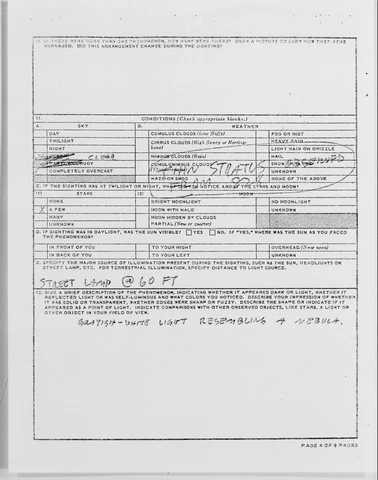 10. IF THERE WERE MORE THAN ONE PHENOMENON, HOW MANY WERE THERE? DRAW A PICTURE TO SHOW HOW THEY WERE
ARRANGED. DID THIS ARRANGEMENT CHANGE DURING THE SIGHTING?
11. CONDITIONS (Check appropriate blocks.)
A. SKY B. WEATHER
DAY CUMULUS CLOUDS (Low fluffy) FOG OR MIST
TWILIGHT CIRRUS CLOUDS (High fleecy or Herringbone) HEAVY RAIN
NIGHT LIGHT RAIN OR DRIZZLE
CLEAR NIMBUS CLOUDS (Rain) HAIL
PARTLY CLOUDY CUMULONIMBUS CLOUDS
COMPLETELY OVERCAST STRATUS UNKNOWN
HAZE OR SMOG NONE OF THE ABOVE
C. IF THE SIGHTING WAS AT TWILIGHT OR NIGHT, NOTICE ABOUT THE STARS AND MOON?
(1) STARS (2) MOON
NONE BRIGHT MOONLIGHT NO MOONLIGHT
A FEW MOON WITH HALO UNKNOWN
MANY MOON HIDDEN BY CLOUDS
UNKNOWN PARTIAL (New or quarter)
D. IF SIGHTING WAS IN DAYLIGHT, WAS THE SUN VISIBLE? YES NO. IF "YES," WHERE WAS THE SUN AS YOU FACED
THE PHENOMENON?
IN FRONT OF YOU TO YOUR RIGHT OVERHEAD (Near noon)
IN BACK OF YOU TO YOUR LEFT UNKNOWN
E. SPECIFY THE MAJOR SOURCE OF ILLUMINATION PRESENT DURING THE SIGHTING, SUCH AS THE SUN, HEADLIGHTS OR
STREET LAMP, ETC. FOR TERRESTRIAL ILLUMINATION, SPECIFY DISTANCE TO LIGHT SOURCE.
STREET LAMP @ 60 FT
12. GIVE A BRIEF DESCRIPTION OF THE PHENOMENON, INDICATING WHETHER IT APPEARED DARK OR LIGHT, WHETHER IT
REFLECTED LIGHT OR WAS SELF-LUMINOUS AND WHAT COLORS YOU NOTICED. DESCRIBE YOUR IMPRESSION OF WHETHER
IT WAS SOLID OR TRANSPARENT, WHETHER EDGES WERE SHARP OR FUZZY. DESCRIBE THE SHAPE OR INDICATE IF IT
APPEARED AS A POINT OF LIGHT. INDICATE COMPARISONS WITH OTHER OBSERVED OBJECTS, LIKE STARS, A LIGHT OR
OTHER OBJECT IN YOUR FIELD OF VIEW.
GRAYISH-WHITE LIGHT RESEMBLING A NEBULA.
PAGE 4 OF 9 PAGES